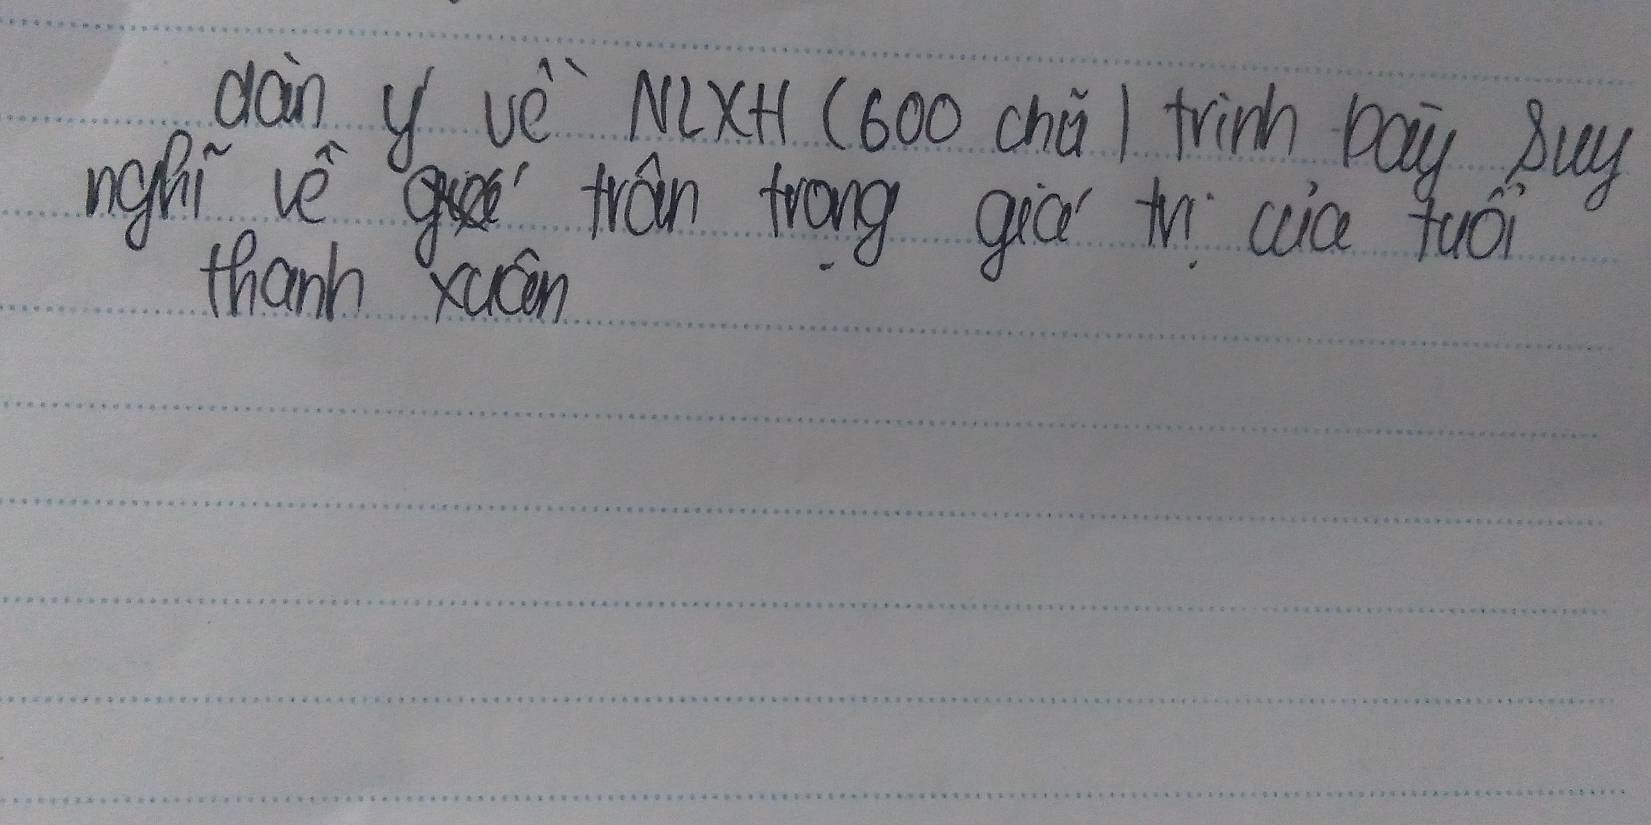 dàn ý về NLXH (600 chữ) trình bày suy
nghĩ về trân trọng giá trị của tuổi
thanh xuân